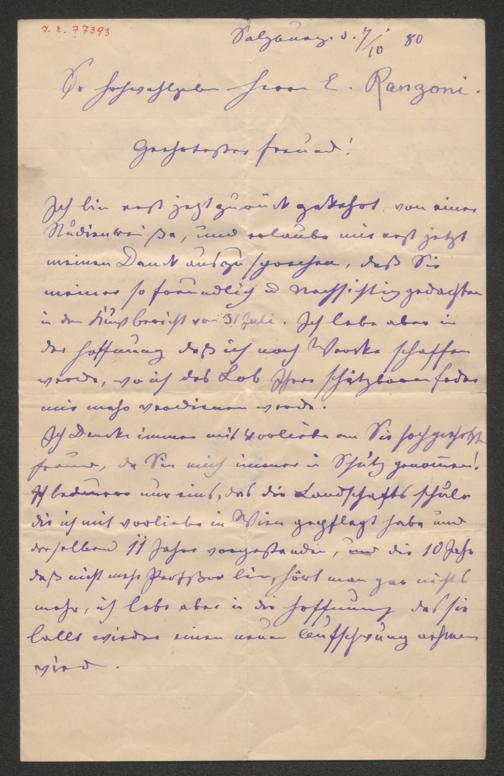 J. N. 77393
Salzburg. d. 7/10 80
Sr Hochwohlgeb Herrn E. Ranzoni.
Geehrtester Freund!
Ich bin erst jetzt zurück gekehrt von einer
Studienreise, und erlaube mir erst jetzt
meinen Dank auszusprechen, daß Sie
meiner so freundlich u nachsichtig gedachten
in den bericht von 31 Juli. Ich lebe aber in
der Hoffnung daß ich noch Werke schaffen
werde, wo ich das Lob Ihrer schätzbaren Feder
mir mehr verdienen werde.
Ich denke immer mit Vorliebe an Sie hochgeehrter
Freund, da Sie mich immer in Schutz genommen!
Ich bedaure nur eins, das die Landschafts schule
die ich mit vorliebe in Wien gepflegt habe und
derselben 11 Jahre vorgestanden, und die 10 Jahr
daß nicht mehr Professor bin, hört man gar nichts
mehr, ich lebe aber in der Hoffnung das sie
balt wieder einen neuen Aufschwung nehmen
wird.